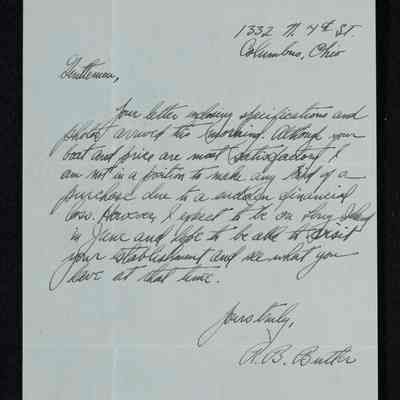 1332 N 4th ST.
Columbus, Ohio
Gentlemen,
Your letter inclosing specifications and
photos arrived this morning. Although your
boat and price are most satisfactory I
am not in a position to make any kind of a
purchase due to a sudden financial
loss. However, I expect to be on Long Island
in June and hope to be able to visit
your establishment and see what you
have at that time.
Yours truly,
R. B. Butler